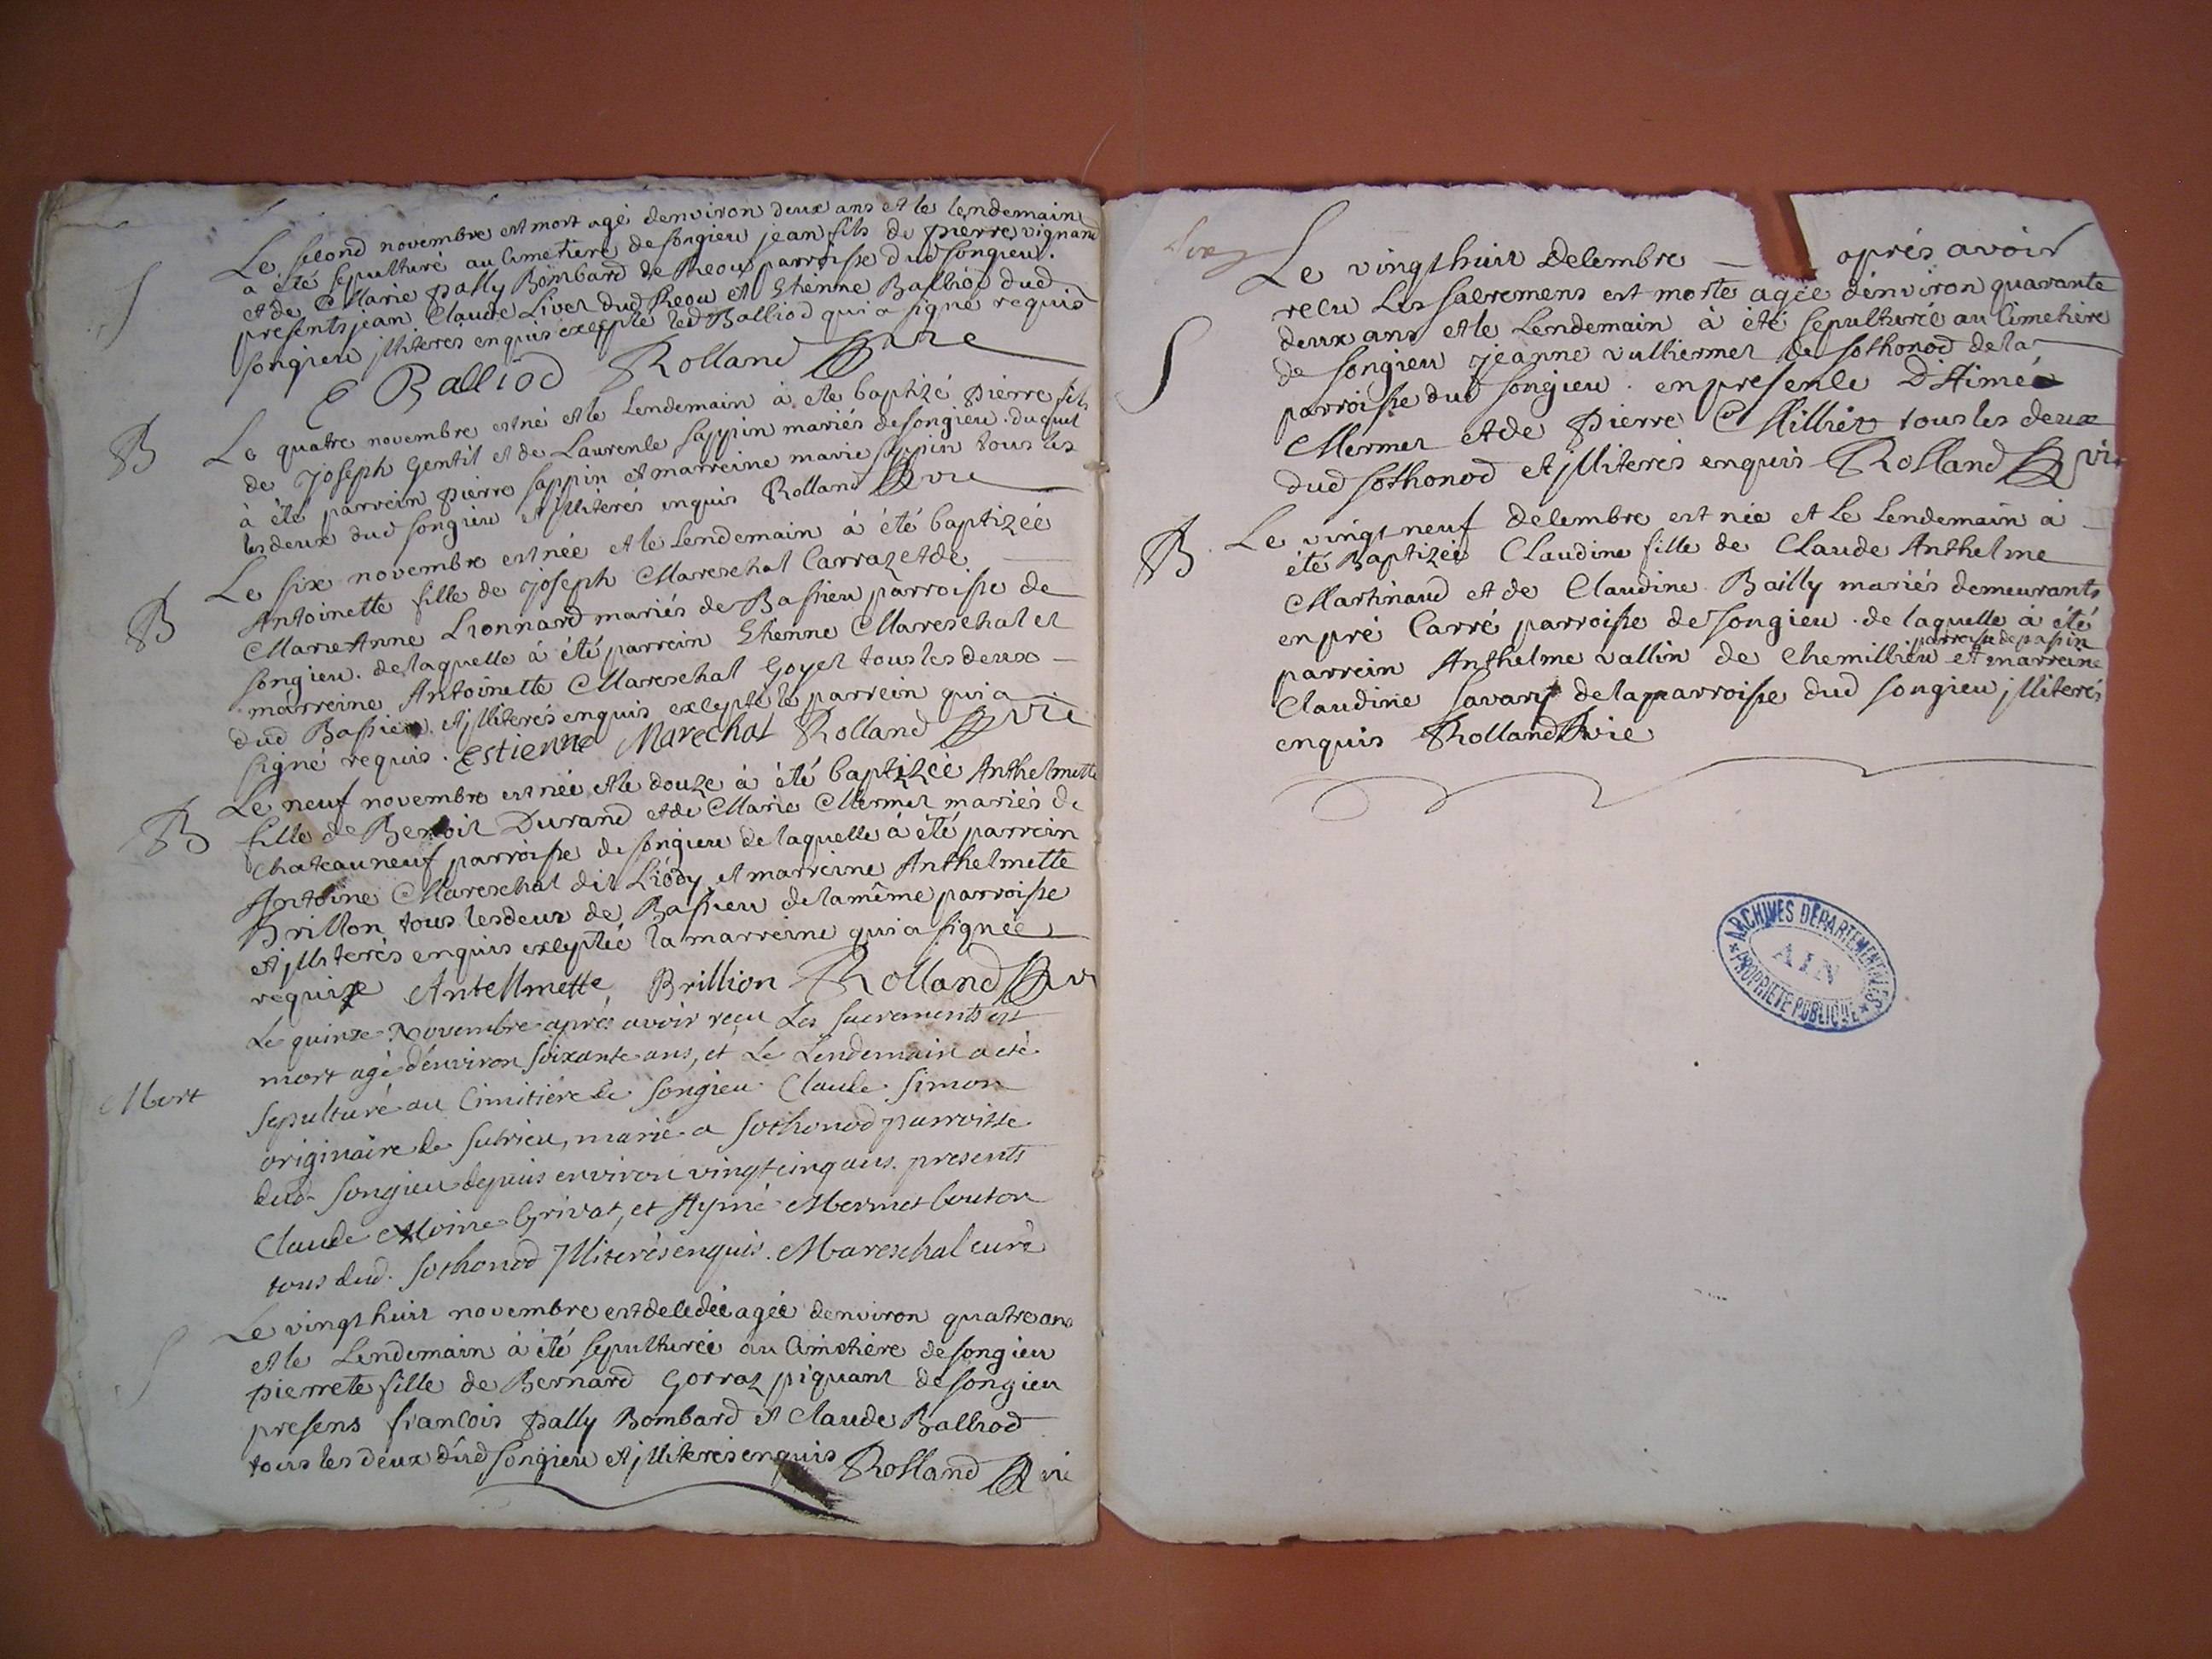 S
Le second novembre est mort agé denviron deux ans et le lendemain
a été sepulturé au Cimetiere de songieu jean fils de pierre vignand
et de Marie pally Bombard de Reou parroisse dud songieu.
presents jean Claude Livet dud Reou et Etienne Balliod dud
songieu illiteres enquis excepté led Balliod qui a signé requis
E Balliod Rolland vre
B
Le quatre novembre est né et le Lendemain à ete baptizé pierre fils
de Joseph Gentil et de Laurence sappin mariés de songieu. duquel
à été parrein pierre sappin et marreine marie sappin tous les
les deux dud songieu et illiterés enquis Rolland vic
B
Le six novembre est née et le Lendemain à été baptizée
Antoinette fille de Joseph Mareschal Carraz et de
Marie Anne Lionnard mariés de Bassieu parroisse de
songieu. de laquelle à été parrein Etienne Mareschal et
marreine Antoinette Mareschal Goyet tous les deux
dud Bassieu. et illiterés enquis excepté le parrein qui a
signé requis. Estienne Marechal Rolland vic
B
Le neuf novembre est née et le douze à été baptizée Anthelmette
fille de Benoit Durand et de Marie Mermet mariés de
Chateauneuf parroisse de songieu de laquelle à été parrein
Antoine Mareschal dit Liody et marreine Anthelmette
Brillon tous les deux de Bassieu de la même parroisse
et illiterés enquis exceptée la marreine qui a signée
requize Antellmette Brillion Rolland v
Mort
Le quinze Novembre après avoir reçu Les sacrements est
mort agé d'environ soixante ans, et Le Lendemain a eté
sepulturé au Cimitiére de songieu Claude simon
originaire de sutrieu, marié a sothonod parroisse
dud. songieu depuis environ vingt cinq ans. presents
Claude Moine Grivat, et Aymé Mermet bouton
tous dud. sothonod Illiterés enquis. Mareschal curé
S
Le vingt huit novembre est decedée agée denviron quatre ans
et le Lendemain à été sepulturée au Cimetiere de songieu
pierrete fille de Bernard Gorraz piquant de songieu
presens francois pally Bombard et Claude Balliod
tous les deux dud songieu et illiterés enquis Rolland vic
S
Le vingt huit decembre après avoir
recu Les sacremens est morte agée d'environ quarante
deux ans et le Lendemain à été sepulturée au Cimetiere
de songieu jeanne vulliermet de sothonod de la
parroisse dud songieu. en presence D'Aimé
Mermet et de pierre Milliet tous les deux
dud sothonod et illiterés enquis Rolland vic
B
Le vingt neuf decembre est née et le Lendemain a
été Baptizée Claudine fille de Claude Anthelme
Martinaud et de Claudine Bailly mariés demeurants
en pré Carré parroisse de songieu. de laquelle à été
parroisse de passin
parrein Anthelme vallin de chemillieu et marreine
Claudine savary de la parroisse dud songieu illiterés
enquis Rolland vic
ARCHIVES DÉPARTEMENTALES
AIN
PROPRIÉTÉ PUBLIQUE